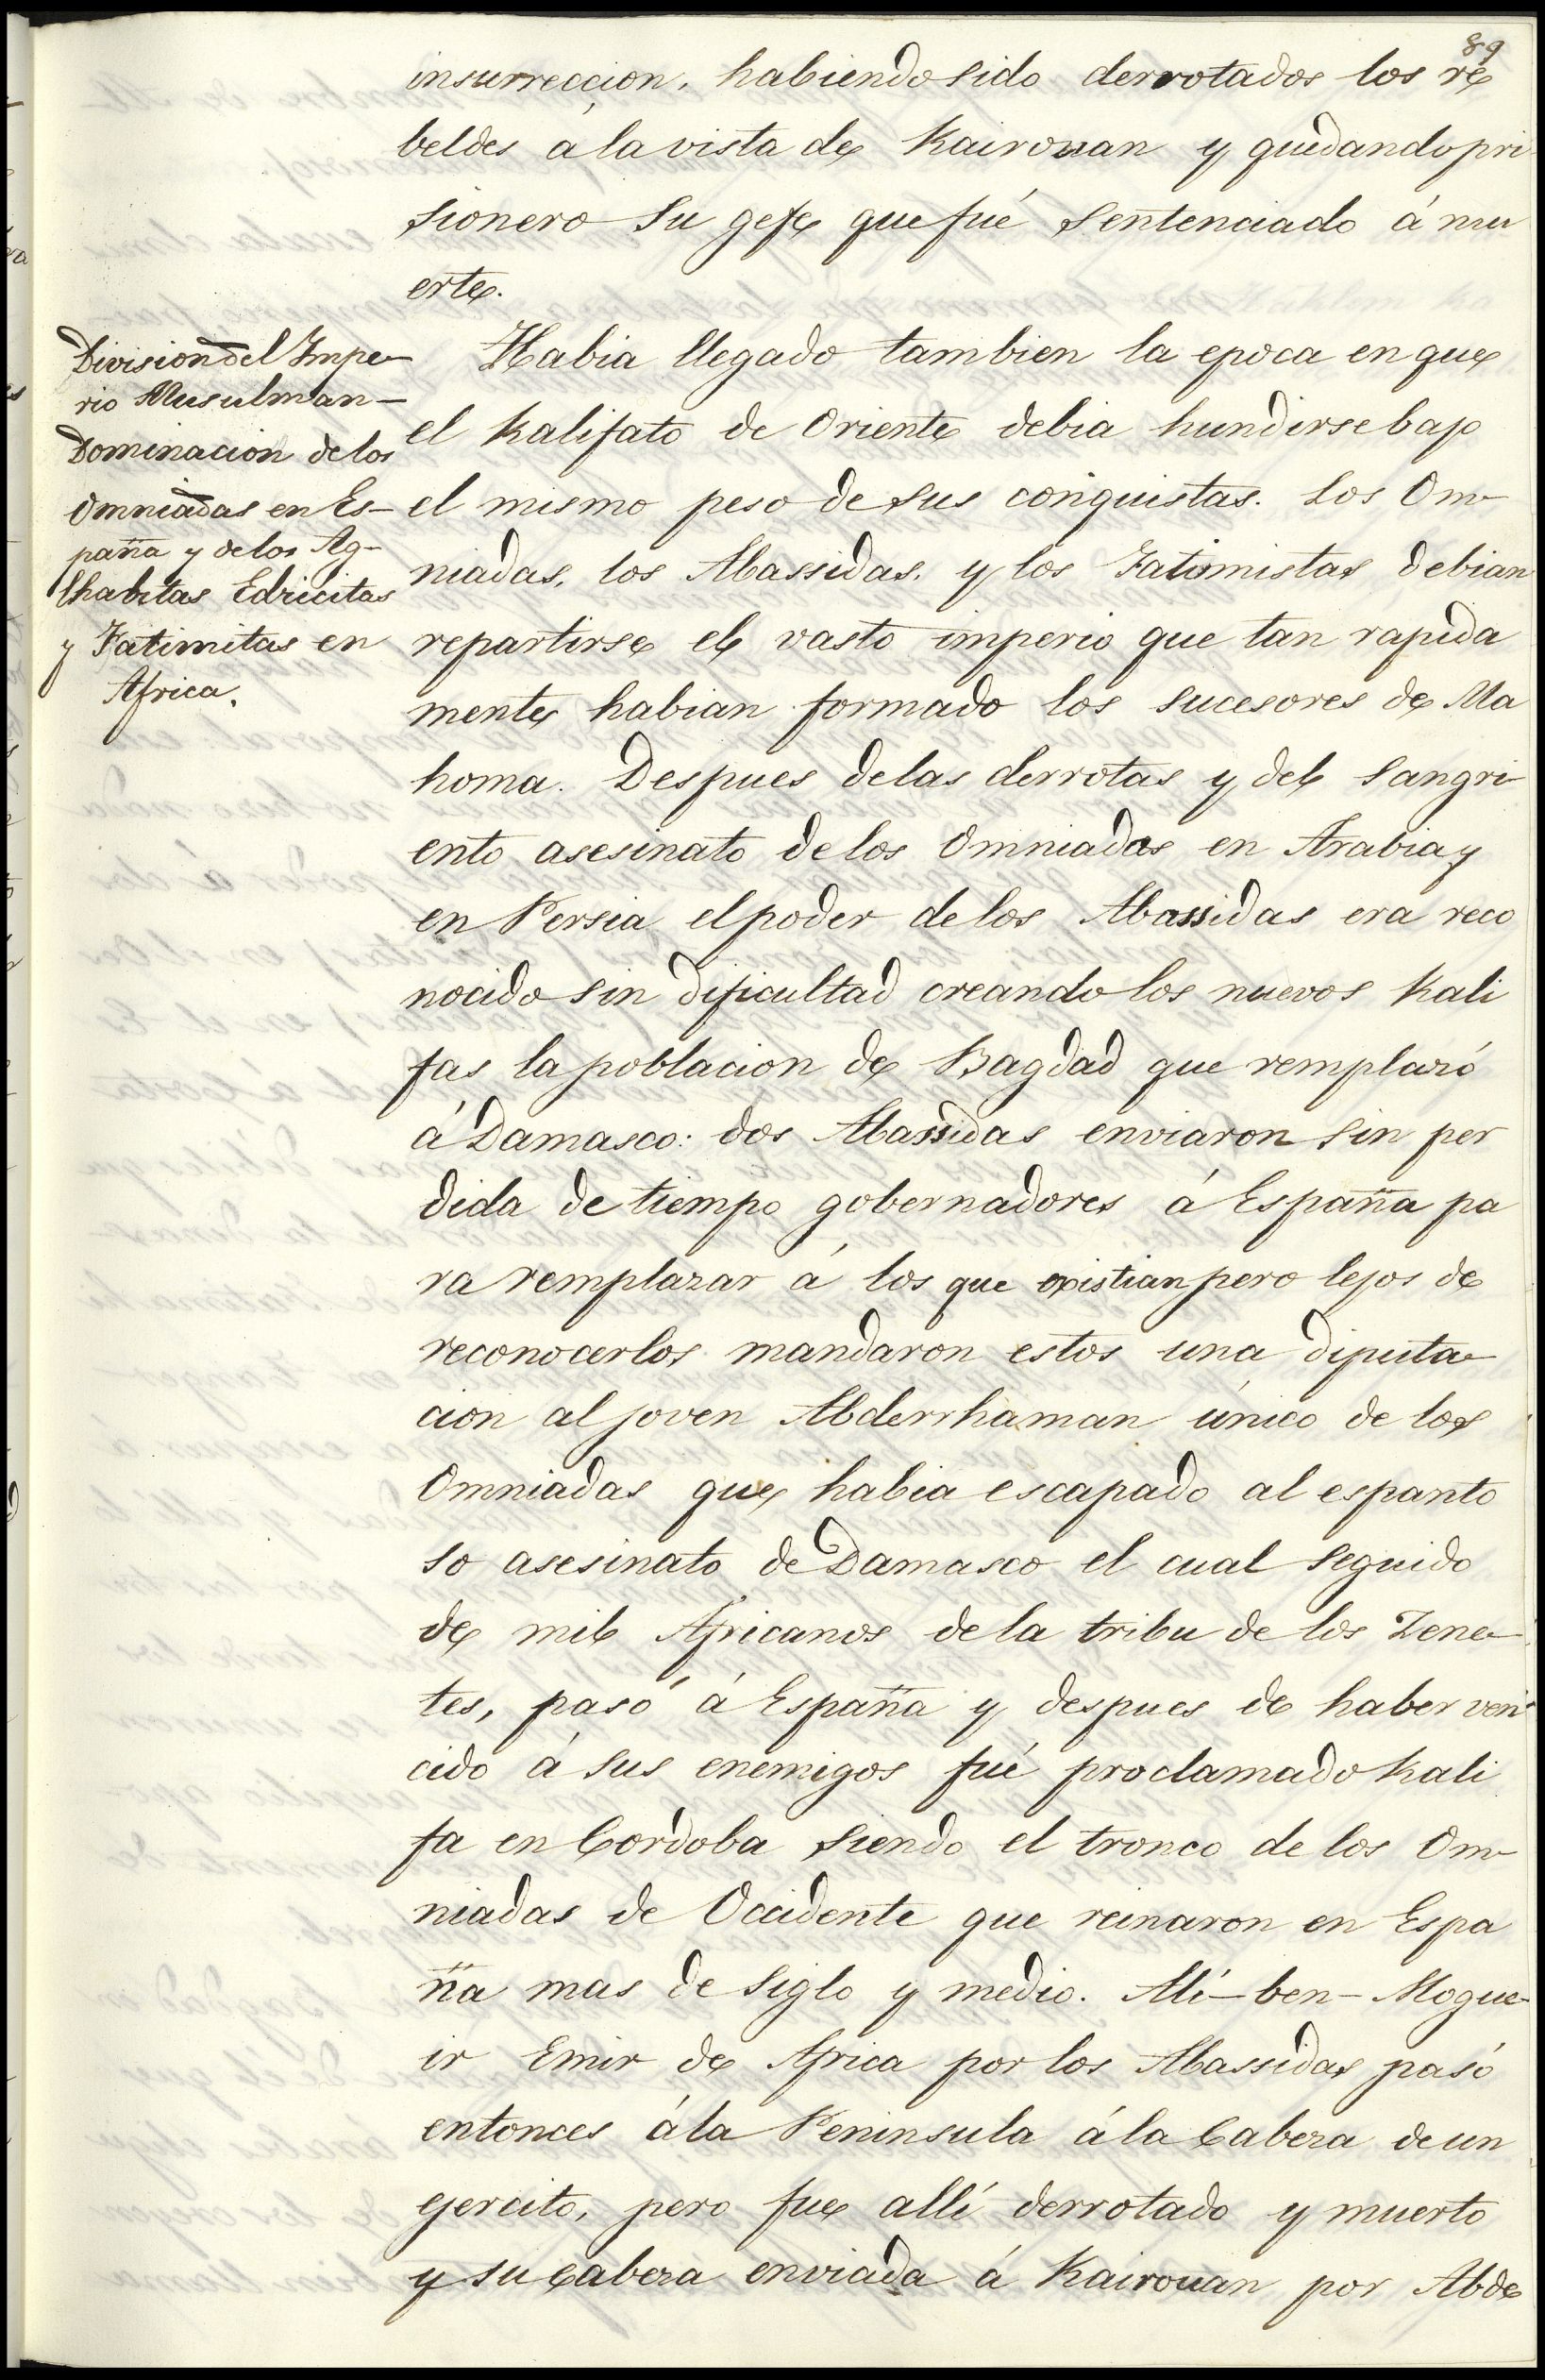 89
insurreccion, habiendo sido derrotados los re
beldes á la vista de Kairouan y quedando pri
sionero su gefe que fué sentenciado á mu
erte.
Division del Impe-
rio Musulman-
Dominacion de los
Omniadas en Es-
paña y de los Ag-
lhabitas Edricitas
y Fatimitas en
Africa.
Habia llegado tambien la epoca en que
el Kalifato de Oriente debia hundirse bajo
el mismo peso de sus conquistas. Los Om-
niadas, los Abassidas, y los Fatimistas debian
repartirse el vasto imperio que tan rapida
mente habian formado los sucesores de Ma
homa. Despues de las derrotas y del sangri-
ento asesinato de los Omniadas en Arabia y
en Persia el poder de los Abassidas era reco
nocido sin dificultad creando los nuevos Kali
fas la poblacion de Bagdad que remplazó
á Damasco: dos Abassidas enviaron sin per
dida de tiempo gobernadores á España pa
ra remplazar á los que existian pero lejos de
reconocerlos mandaron estos una diputa-
cion al joven Abderrhaman único de los
Omniadas que habia escapado al espanto
so asesinato de Damasco el cual seguido
de mil Africanos de la tribu de los Zene-
tes, pasó á España y despues de haber ven
cido á sus enemigos fué proclamado Kali
fa en Cordoba siendo el tronco de los Om-
niadas de Occidente que reinaron en Espa
ña mas de siglo y medio. Alí-ben-Mogue-
ir Emir de Africa por los Abassidas pasó
entonces á la Peninsula á la Cabeza de un
ejercito, pero fue allí derrotado y muerto
y su cabeza enviada á Kairouan por Abde